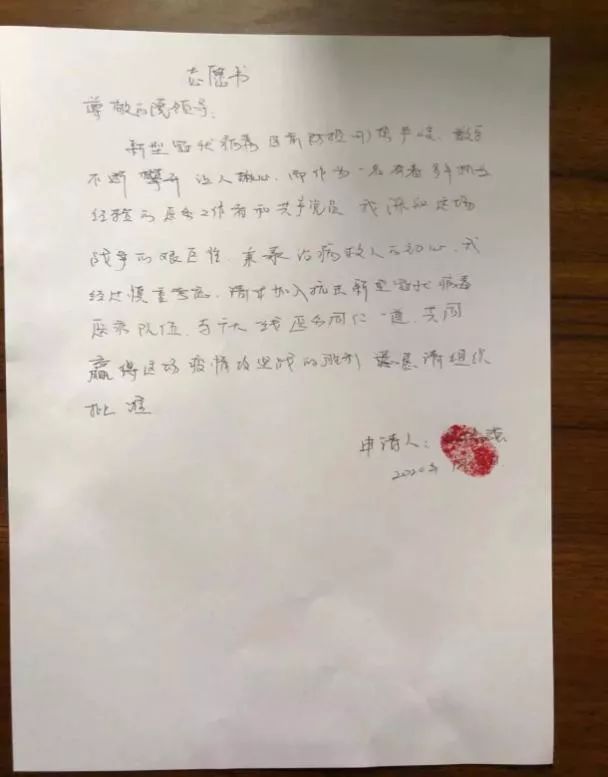 志愿书
尊敬的院领导：
新型冠状病毒目前防控形势严峻，数字
不断攀升让人揪心，而作为一名有着多年
经验的医务工作者和共产党员 我深知这场
战争的艰巨性，秉承治病救人的初心，我
经过慎重考虑，请求加入抗击新型冠状病毒
医疗队伍，与广大一线医务同仁一道，共同
赢得这场疫情攻坚战的胜利 恳请组织
批准
申请人：
2020年